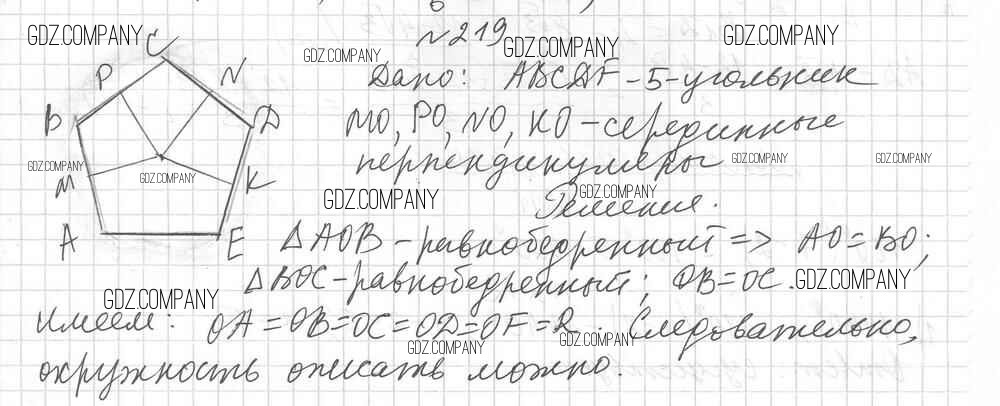 №219
Дано: ABCDF - 5-угольник
MO, PO, NO, KO - серединные
перпендикуляры
Решение.
△AOB - равнобедренный => AO = BO;
△BOC - равнобедренный; OB = OC.
Имеем: OA = OB = OC = OD = OF = R. Следовательно,
окружность описать можно.
C
P
N
B
D
M
K
A
E
GDZ.COMPANY
GDZ.COMPANY
GDZ.COMPANY
GDZ.COMPANY
GDZ.COMPANY
GDZ.COMPANY
GDZ.COMPANY
GDZ.COMPANY
GDZ.COMPANY
GDZ.COMPANY
GDZ.COMPANY
GDZ.COMPANY
GDZ.COMPANY
GDZ.COMPANY